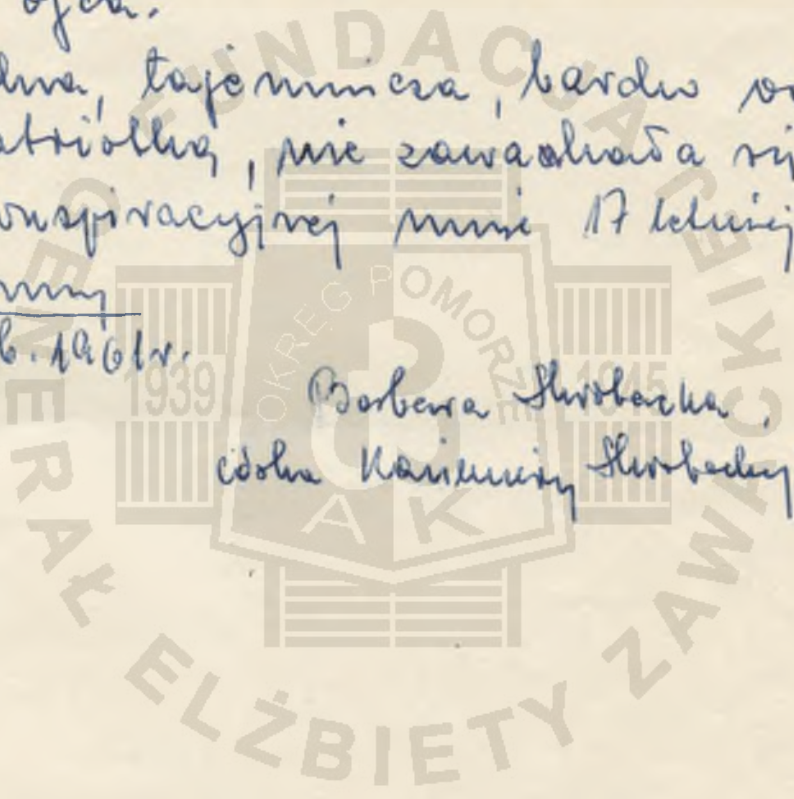 ojca.
tajemnicza, bardzo
patriotką, nie zawahała się
konspiracyjnej mnie 17 letniej
1961r.
Barbara Skrobacka,
córka Kazimiery Skrobackiej
FUNDACJA GENERAŁ ELŻBIETY ZAWACKIEJ
OKRĘG POMORZE
1939
1945
AK